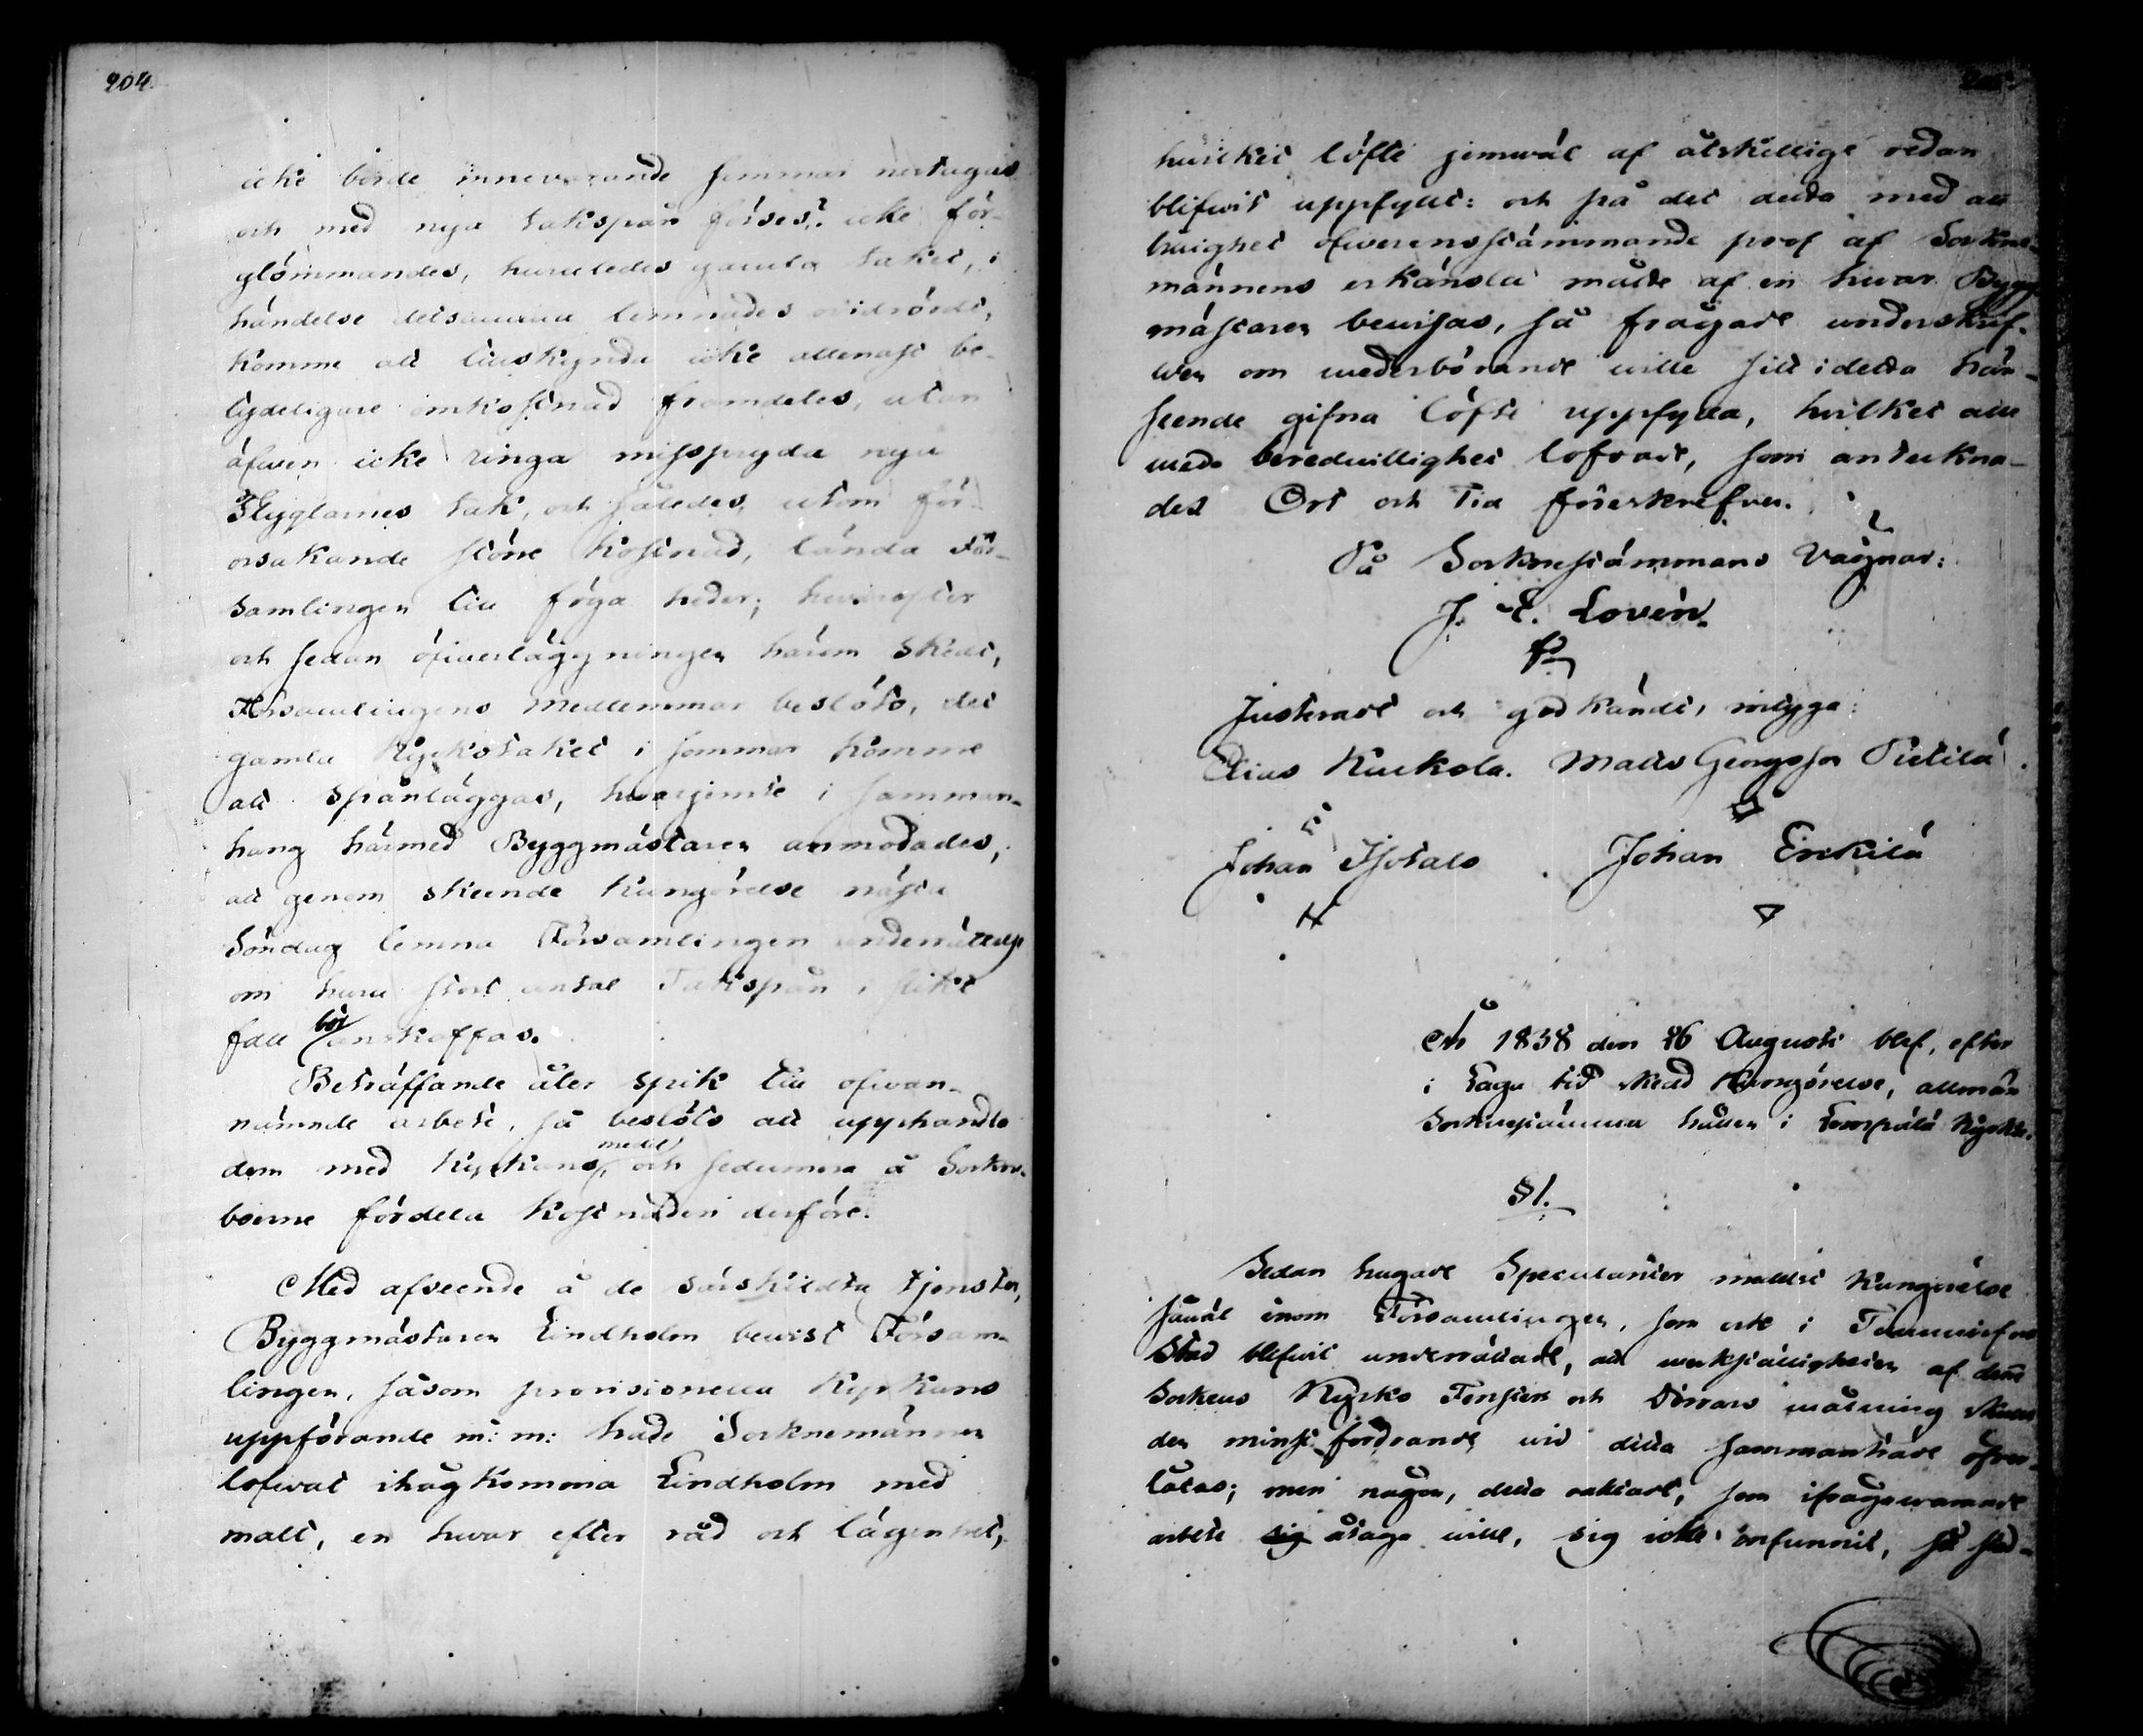 204.
icke borde innevarande sommar nertagas
och med nya takspån förses? icke för-
glömmandes, huruledes gamla taket, i
händelse detsamma lemnades ovidrördt,
komme att tillskynda icke allenast be-
tydeligare omkostnad framdeles, utan
äfwen icke ringa misspryda nya
Flyglarnes tak, och således, utom för-
orsakande större kostnad, lända För-
samlingen till föga heder; hwarefter
och sedan öfwerläggningen härom skedt,
Församlingens Medlemmar beslöto, det
gamla Kyrkotaket i sommar komme
att spånläggas, hwarjemte i samman-
hang härmed Byggmästaren anmodades,
att genom skeende Kungörelse nästa
Söndag lemna Församlingen underrättelse
om huru stort antal Takspån i slikt
fall bör anskaffas.
Beträffande åter spik till ofwan-
nämnde arbete, så beslöts att upphandla
dem med Kyrkans medel och sedermera å Sockne-
boerne fördela kostnaden derföre.
Med afseende å de särskildta tjenster,
Byggmästaren Lindholm bewist Försam-
lingen, såsom provisionella Kyrkans
uppförande m: m: hade Socknemännen
lofwat ihågkomma Lindholm med
malt, en hwar efter råd och lägenhet,
hwilket löfte jemwäl af åtskillige redan
blifwit uppfyllt: och på det detta med all
billighet öfwerensstämmande prof af Sockne-
männens erkänsla måtte af en hwar Bygg-
mästaren bewisas, så frågade underskrif-
wen om wederbörande wille sitt i detta hän-
seende gifna löfte uppfylla, hvilket alle
med beredwillighet lofvade, som anteckna-
des Ort och Tid förestrefwen.
På Socknestämmans vägnar:
J. E. Lovén.
Justeradt och godkändt, intyga:
Elias Kuckola. Matts Georgsson Pietilä
Johan Isotalo. Johan Erckilä
År 1838 den 26 Augusti blef, efter
i laga tid skedd Kungörelse, allmän
Sockнestämma hållen i Lempälä Kyrka.
§ 1.
Sedan hugade Speculanter medelst Kungörelse
såwäl inom Församlingen, som ock i Tammerfors
Stad blefwit underrättade, att werkställigheten af denna
Sockens Kyrko Fenster och Dörrars målning skulle
den minst fordrande wid detta sammanträde öfwer-
låtas; men någon, detta oaktadt, som ifrågawarande
arbete sig åtaga wille, sig icke infunnit, så